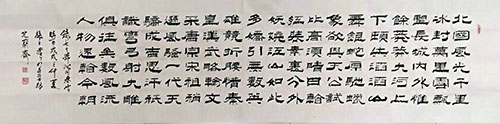 北國風光千里
冰封萬里雪飄
望長城内外惟
餘莽莽大河上
下頓失滔滔山
舞銀蛇原馳蠟
象欲與天公試
比高須晴日看
紅裝素裹分外
妖嬈江山如此
多嬌引無數英
雄競折腰惜秦
皇漢武略輸文
采唐宗宋祖稍
遜風騷一代天
驕成吉思汗祇
識彎弓射大雕
俱往矣數風流
人物還看今朝